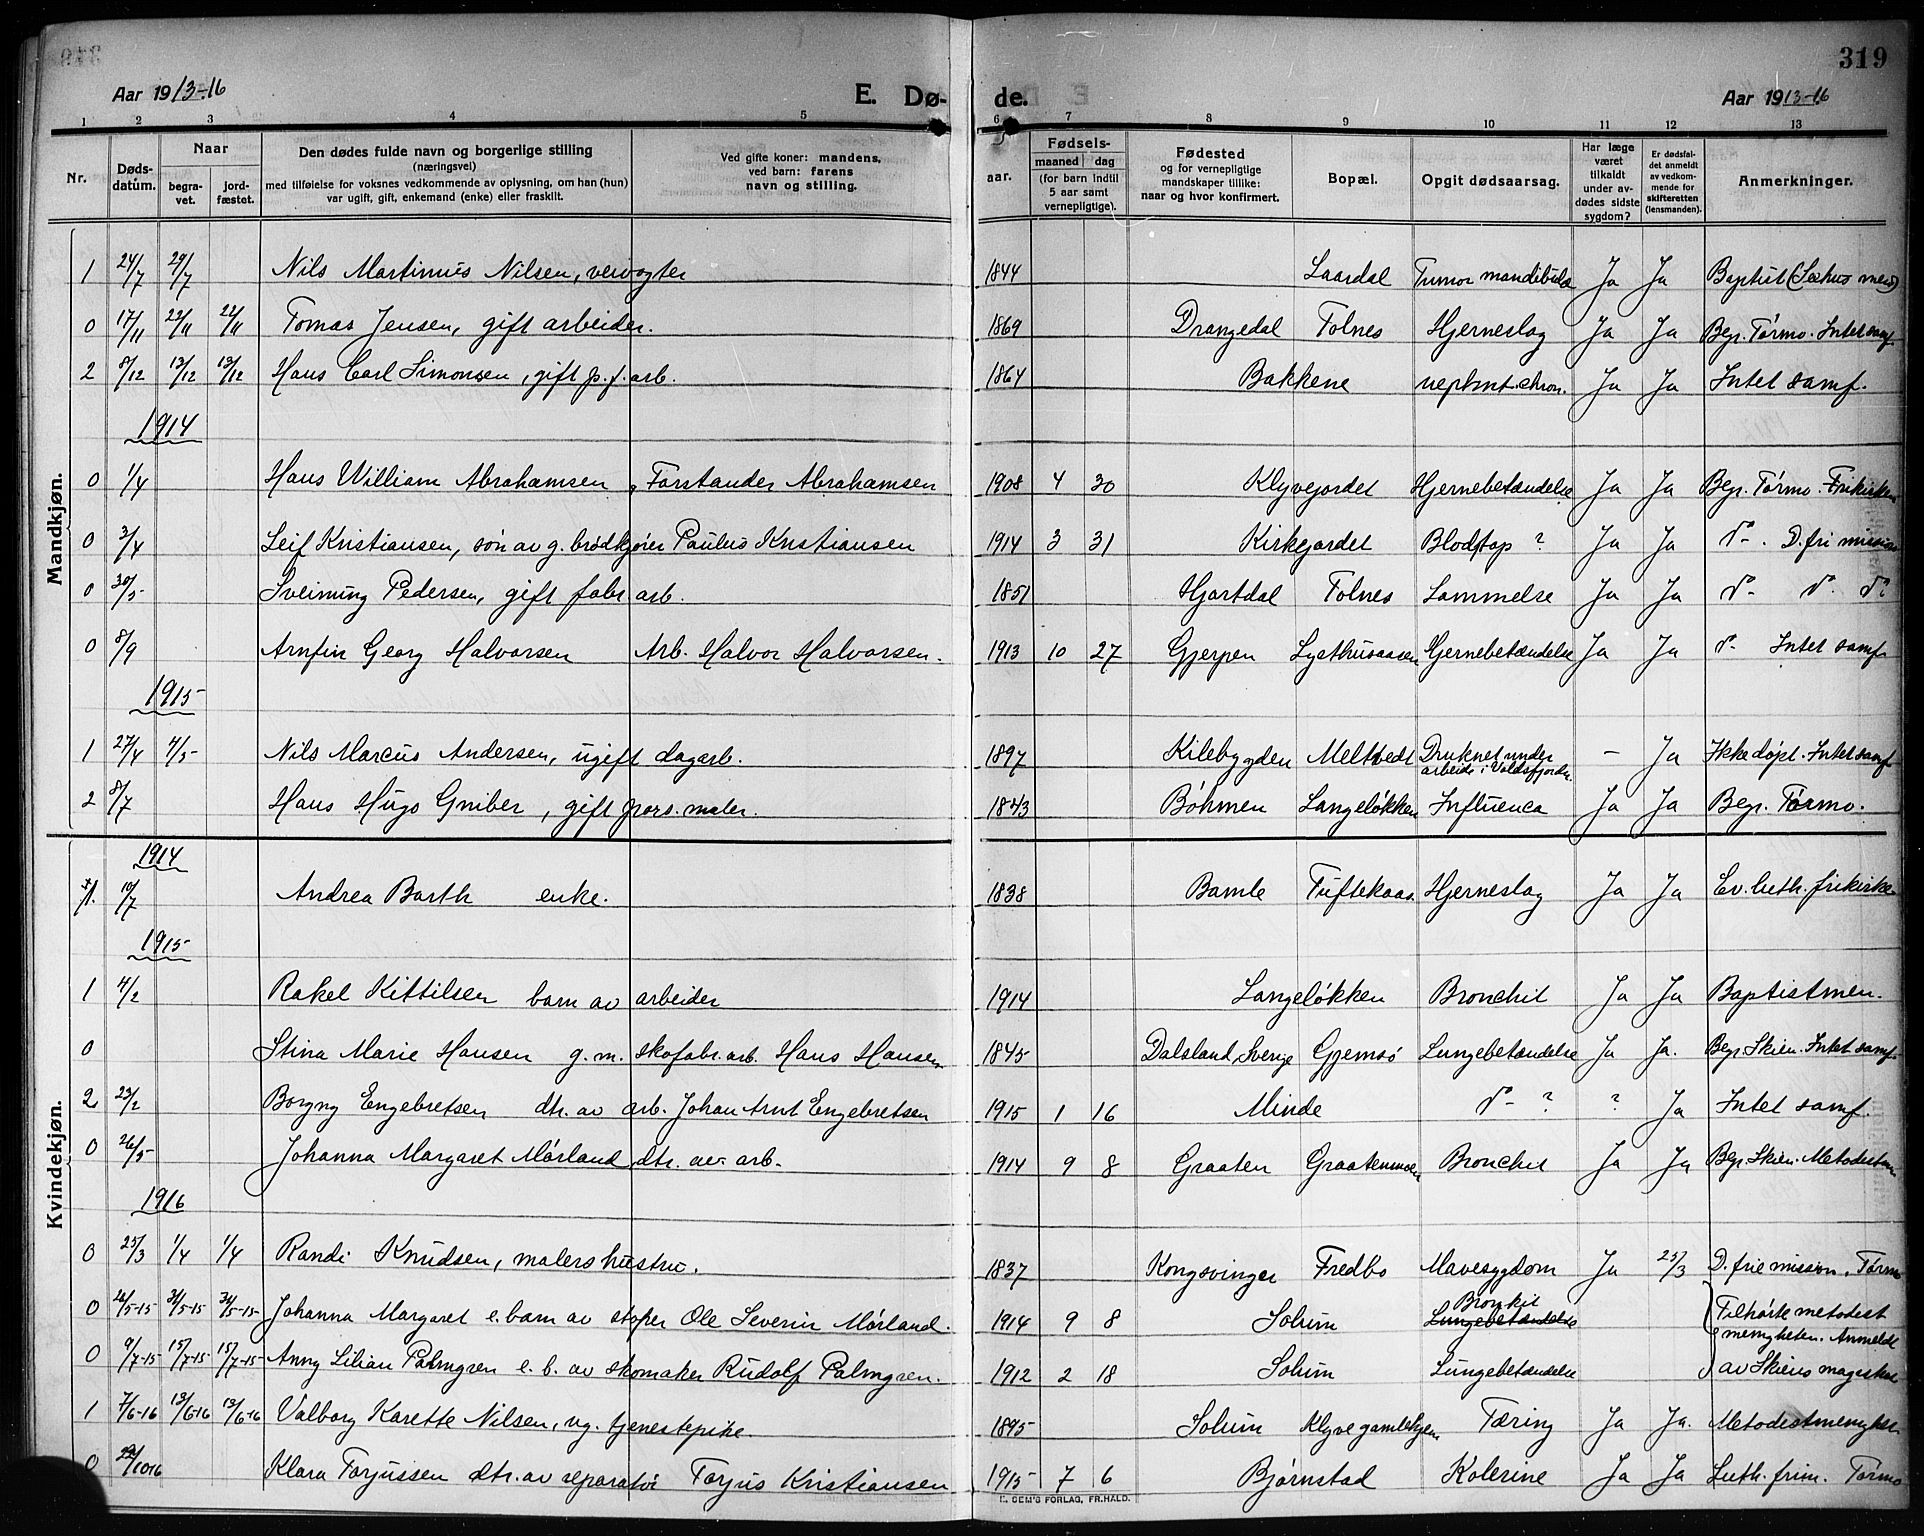 319
Aar 1913-16 E. Dø- de. Aar 1913-16
1 2 3 4 5 6 7 8 9 10 11 12 13
Nr. Døds-datum. Naar begra-vet. jord-fæstet. Den dødes fulde navn og borgerlige stilling (næringsvei) med tilføielse for voksnes vedkommende av oplysning, om han (hun) var ugift, gift, enkemand (enke) eller fraskilt. Ved gifte koner: mandens, ved barn: farens navn og stilling. aar. Fødsels- maaned dag (for barn indtil 5 aar samt vernepligtige). Fødested og for vernepligtige mandskaper tillike: naar og hvor konfirmert. Bopæl. Opgit dødsaarsag. Har læge været tilkaldt under av-dødes sidste sygdom? Er dødsfal-det anmeldt av vedkom-mende for skifteretten (lensmanden). Anmerkninger.
Mandkjøn.
1 24/7 29/7 Nils Martinius Nilsen, 1844 Laardal Tumor mandibula Ja Ja Baptist
0 17/11 22/11 22/11 Tomas Jensen, gift arbeider. 1869 Drangedal Tolnes Hjerneslag Ja Ja Begr. Tørmo. Intet samf.
2 8/12 13/12 13/12 Hans Carl Simonsen, gift p.f. arb. 1864 Bakkene chron. Ja Ja Intet samf.
1914
0 1/4 Hans William Abrahamsen, Forstander Abrahamsen 1908 4 30 Klyvejordet Hjernebetændelse Ja Ja Begr. Tørmo. Frikirken
0 3/4 Leif Kristiansen, søn av g. brødkjører Paulus Kristiansen 1914 3 31 Kirkejordet Blodstap ? Ja Ja do. D. fri mission
0 30/5 Sveinung Pedersen, gift fabr arb. 1851 Hjartdal Tolnes Lammelse Ja Ja do do do
0 8/9 Arnfin Georg Halvorsen Arb. Halvor Halvorsen. 1913 10 27 Gjerpen Lysthusaasen Hjernebetændelse Ja Ja do Intet samf.
1915
1 27/4 4/5 Nils Marcus Andersen, ugift dagarb. 1897 Kilebygden Meltvedt Druknet under arbeide i Voldsfjorden. - Ja Ikke døpt. Intet samf.
2 8/7 Hans Hugo Gniber, gift pors. maler. 1843 Bøhmen Langeløkken Influenca Ja Ja Begr. Tørmo.
Kvindekjøn.
1914
1. 10/7 Andrea Barth enke. 1838 Bamle Tuftekaas. Hjerneslag Ja Ja Ev. luth. frikirke
1915
1 4/2 Rakel Kittilsen barn av arbeider 1914 Langeløkken Bronchit Ja Ja Baptistmen.
0 Stina Marie Hansen g.m. skofabr. arb. Hans Hansen 1845 Dalsland, Sverige Gjemsø Lungebetændelse Ja Ja. Begr. Skien. Intet samf.
2 23/2 Borgny Engebretsen dtr. av arb. Johan Arnt Engebretsen 1915 1 16 Minde do ? ? Ja Intet samf.
0 26/5 Johanna Margaret Mørland dtr. av arb. 1914 9 8 Graaten Graatenmoen Bronchit Ja Ja Begr. Skien. Metodistm
1916
0 25/3 1/4 1/4 Randi Knudsen, malers hustru. 1837 Kongsvinger Fredbo Mavesygdom Ja 25/3 D. frie mission. Tørmo
0 26/5-15 31/5-15 31/5-15 Johanna Margaret e. barn av støper Ole Severin Mørland. 1914 9 8 Solum Bronkit Lungebetændelse Tilhørte metodist
menigheten. Anmeldt
0 9/7-15 15/7-15 15/7-15 Anny Lilian Palmgren e. b. av skomaker Rudolf Palmgren. 1912 2 18 Solum Lungebetændelse av Skiens magistrat
1 7/6-16 13/6-16 13/6-16 Valborg Karette Nilsen, ug. tjenestepike 1895 Solum Klyve gamlehjem Tæring Ja Ja. Metodistmenighet
0 22/10-16 Klara Torjussen dtr. av reparatør Torjus Kristiansen 1915 7 6 Bjørnstad Kolerine Ja Ja Luth. frim. Tørmo
E. SEM'S FORLAG, FR.HALD.